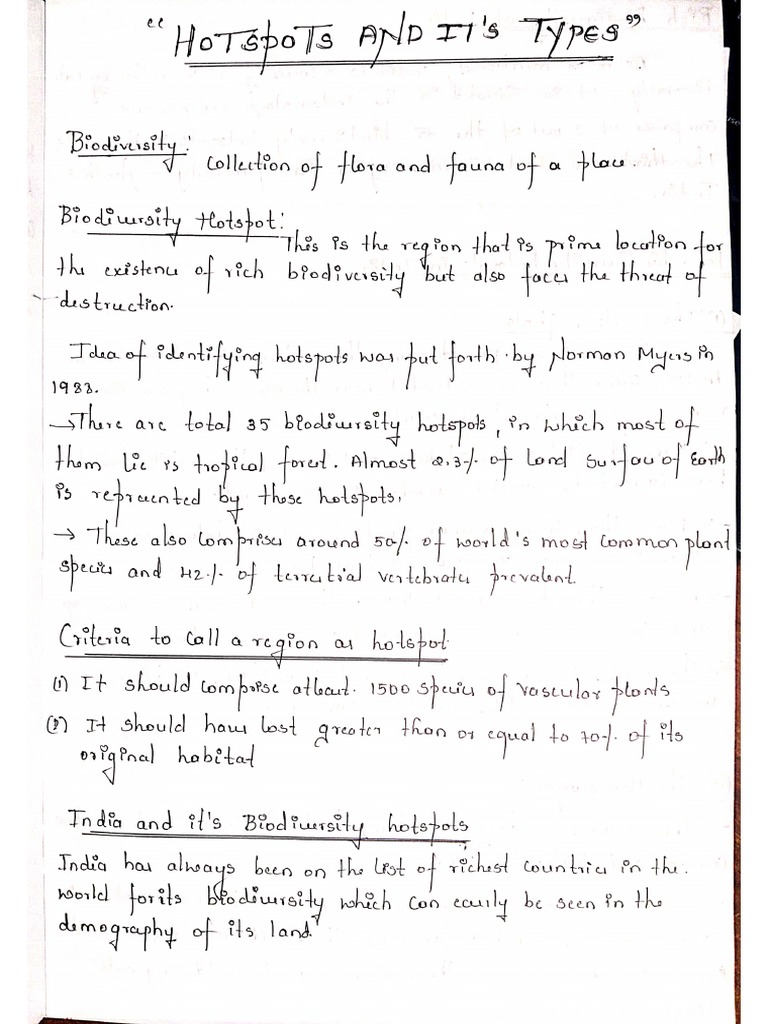 "HOTSPOTS AND IT'S TYPES"
Biodiversity:
Collection of flora and fauna of a place.
Biodiversity Hotspot:
This is the region that is prime location for
the existence of rich biodiversity but also faces the threat of
destruction.
Idea of identifying hotspots was put forth by Norman Myers in
1988.
→There are total 35 biodiversity hotspots, in which most of
them lie is tropical forest. Almost 2.3% of Land Surface of Earth
is represented by these hotspots.
→ These also comprises around 50% of world's most common plant
species and 42% of terrestrial vertebrates prevalent.
Criteria to call a region as hotspot
(1) It should comprise atleast 1500 species of vascular plants
(2) It should have lost greater than or equal to 70% of its
original habitat
India and it's Biodiversity hotspots
India has always been on the list of richest countries in the
world for its biodiversity which can easily be seen in the
demography of its land.